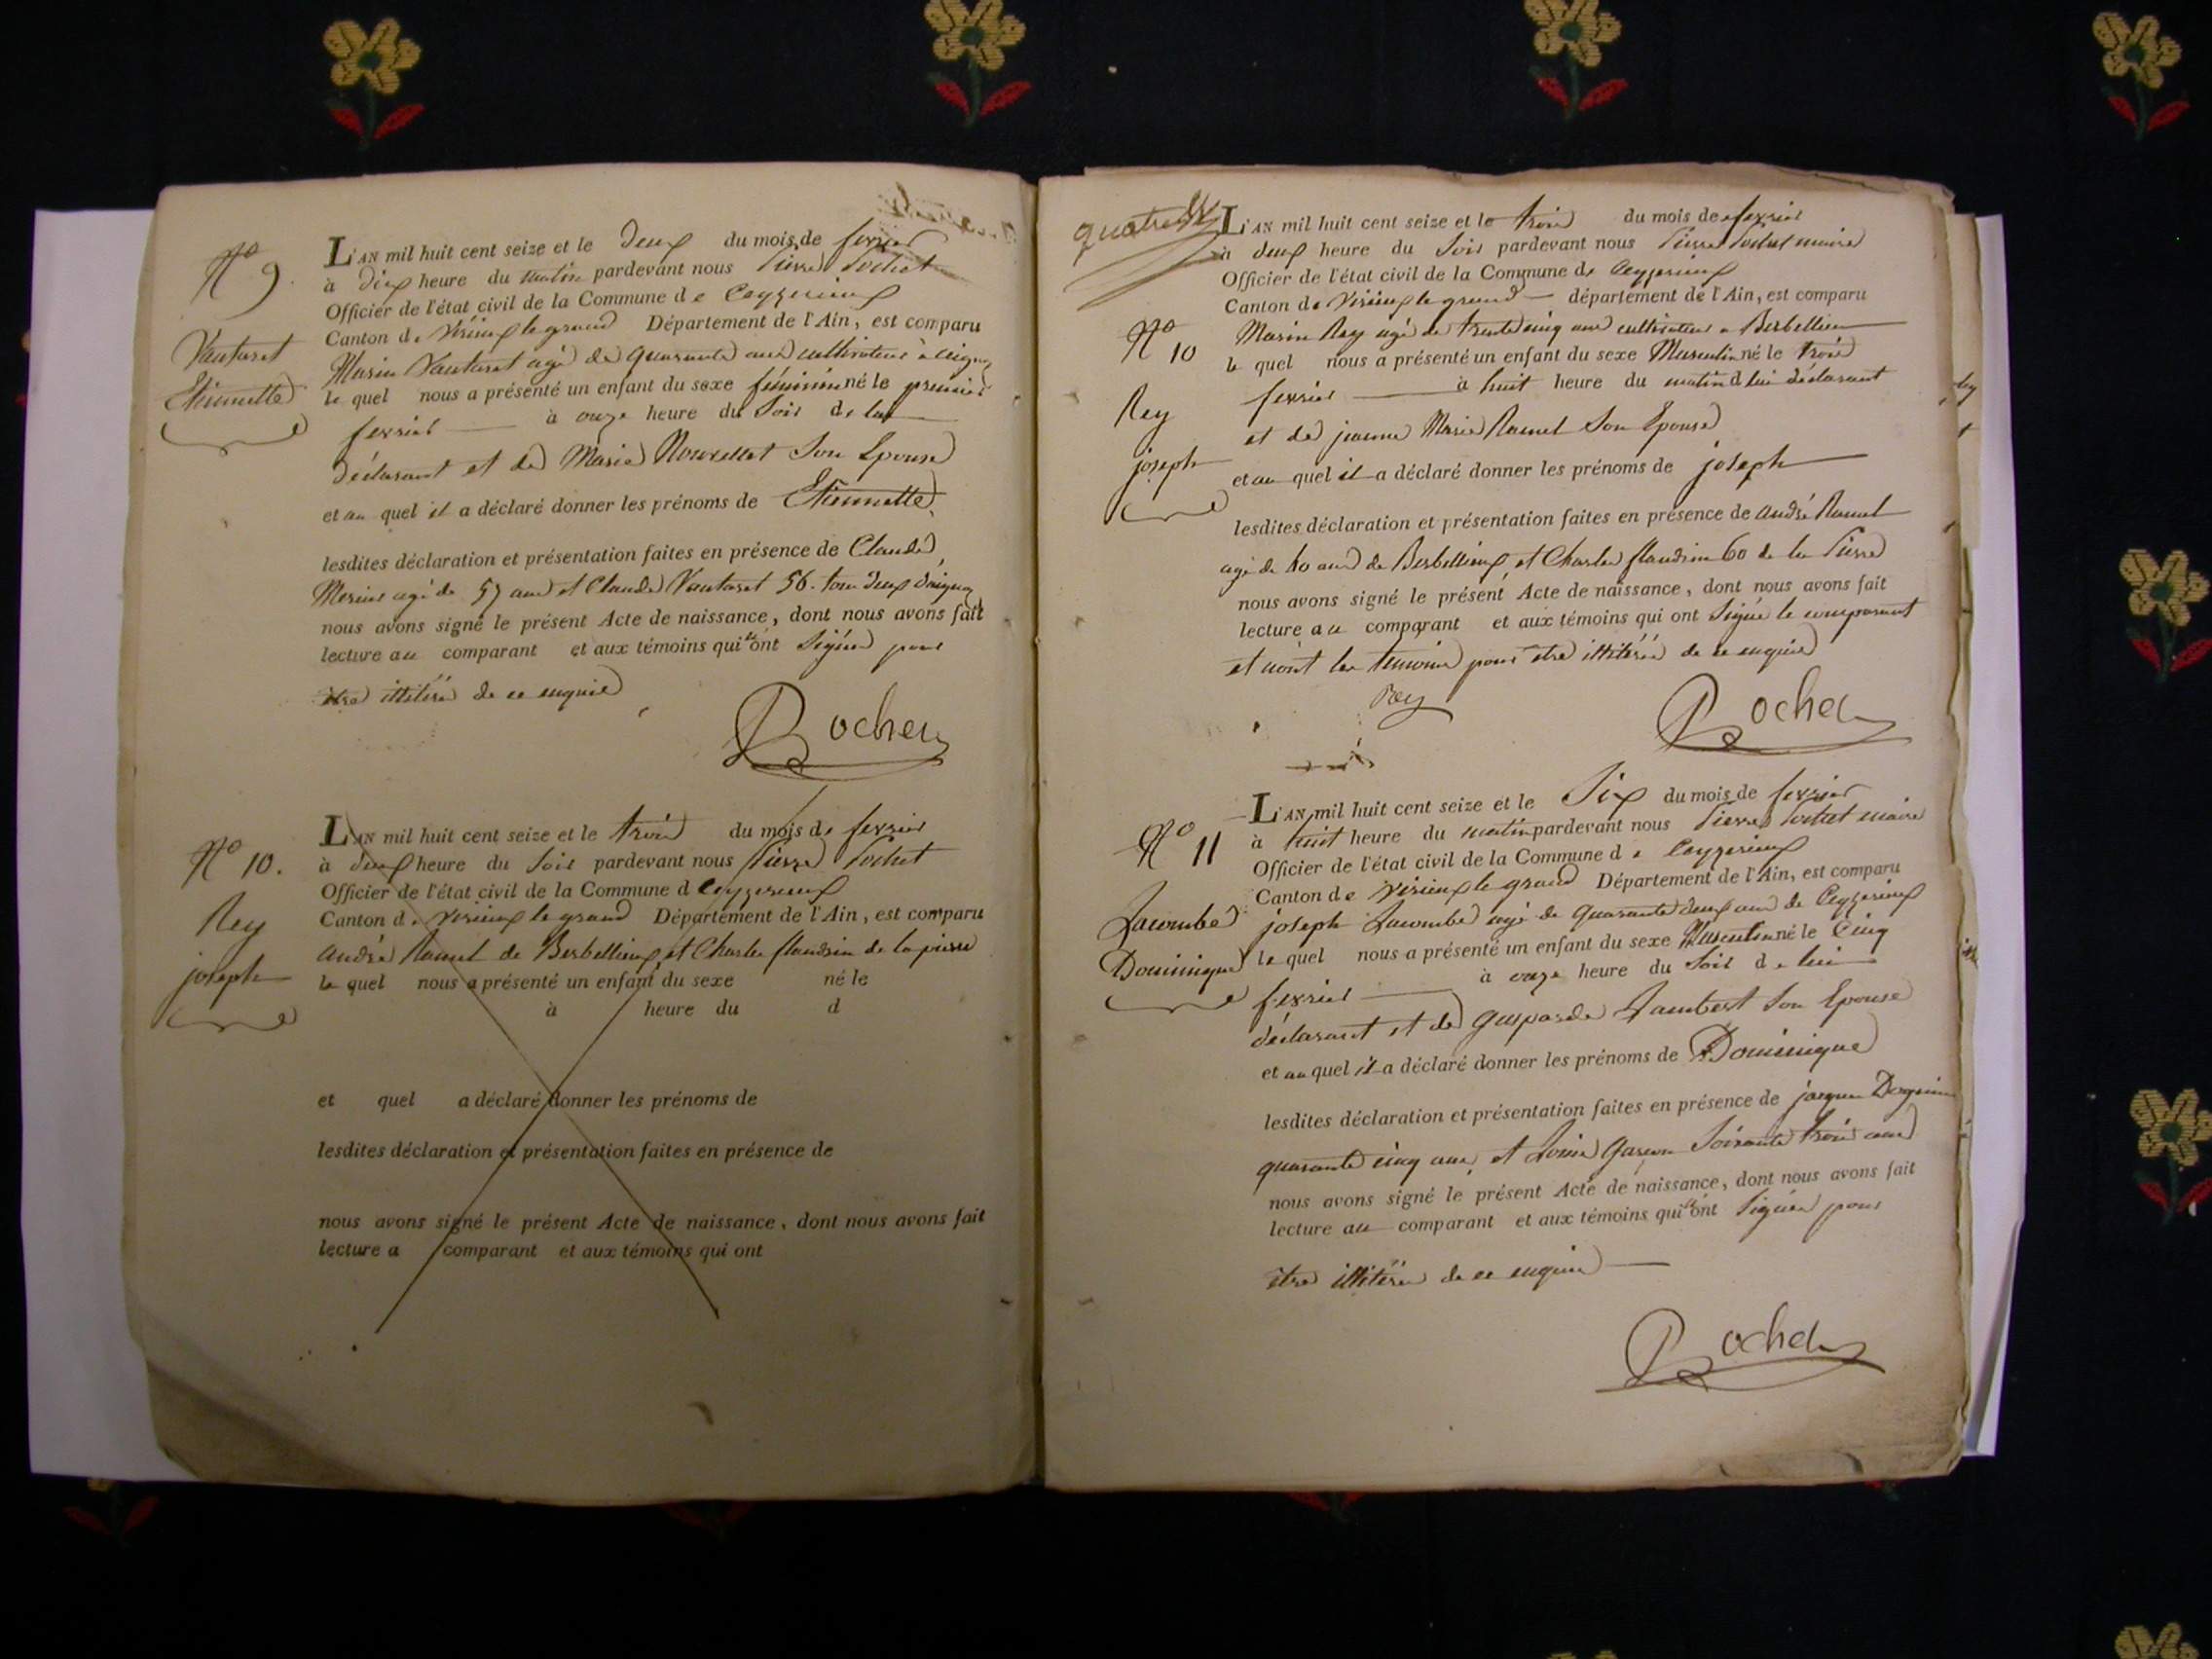 N.º 9.
Vautaret
Etiennette
L'AN mil huit cent seize et le deux du mois de fevrier
à dix heure du matin pardevant nous Pierre Rochet
Officier de l'état civil de la Commune de Ceyzerieux
Canton de Virieux le grand Département de l'Ain, est comparu
Marin Vautaret agé de quarante ans cultivateur à
le quel nous a présenté un enfant du sexe féminin né le premier
fevrier à onze heure du Soir de lui
déclarant et de Marie Nouvellet Son Epouse
et au quel il a déclaré donner les prénoms de Etiennette
lesdites déclaration et présentation faites en présence de Claude
agé de 57 ans et Claude Vautaret 56. tous deux
nous avons signé le présent Acte de naissance, dont nous avons fait
lecture au comparant et aux témoins qui n'ont Signés pour
être illitérés de ce enquis
Rochet
N.º 10.
Rey
joseph
L'AN mil huit cent seize et le trois du mois de fevrier
à deux heure du Soir pardevant nous Pierre Rochet
Officier de l'état civil de la Commune d Ceyzerieux
Canton de Virieux le grand Département de l'Ain, est comparu
André Ramel de Berbellieux et Charles flandrin de la pierre
le quel nous a présenté un enfant du sexe né le
à heure du d
et quel a déclaré donner les prénoms de
lesdites déclaration et présentation faites en présence de
nous avons signé le présent Acte de naissance, dont nous avons fait
lecture a comparant et aux témoins qui ont
quatre
N.º 10
Rey
joseph
L'AN mil huit cent seize et le trois du mois de fevrier
à deux heure du Soir pardevant nous Pierre Rochet maire
Officier de l'état civil de la Commune de Ceyzerieux
Canton de Virieux le grand département de l'Ain, est comparu
Marin Rey agé de trente cinq ans cultivateur a Berbellieux
le quel nous a présenté un enfant du sexe Masculin né le trois
fevrier à huit heure du matin d lui déclarant
et de jeanne Marie Ramel Son Epouse
et au quel il a déclaré donner les prénoms de joseph
lesdites déclaration et présentation faites en présence de andré Ramel
agé de 60 ans de Berbellieux et Charles flandrin 60 de la Pierre
nous avons signé le présent Acte de naissance, dont nous avons fait
lecture au comparant et aux témoins qui ont Signé le comparant
et nont les temoins pour etre illitérés de ce enquis
Rey
Rochet
N.º 11
Lacombe
Dominique
L'AN mil huit cent seize et le Six du mois de fevrier
à huit heure du matin pardevant nous Pierre Rochet maire
Officier de l'état civil de la Commune de Ceyzerieux
Canton de Virieux le grand Département de l'Ain, est comparu
joseph Lacombe agé de quarante deux ans de Ceyzerieux
le quel nous a présenté un enfant du sexe Masculin né le Cinq
fevrier à onze heure du Soir de lui
déclarant et de gasparde Jambert Son Epouse
et au quel il a déclaré donner les prénoms de Dominique
lesdites déclaration et présentation faites en présence de jacques
quarante cinq ans, et Louis Soixante trois ans
nous avons signé le présent Acte de naissance, dont nous avons fait
lecture au comparant et aux témoins qui n'ont Signés pour
être illitérés de ce enquis
Rochet